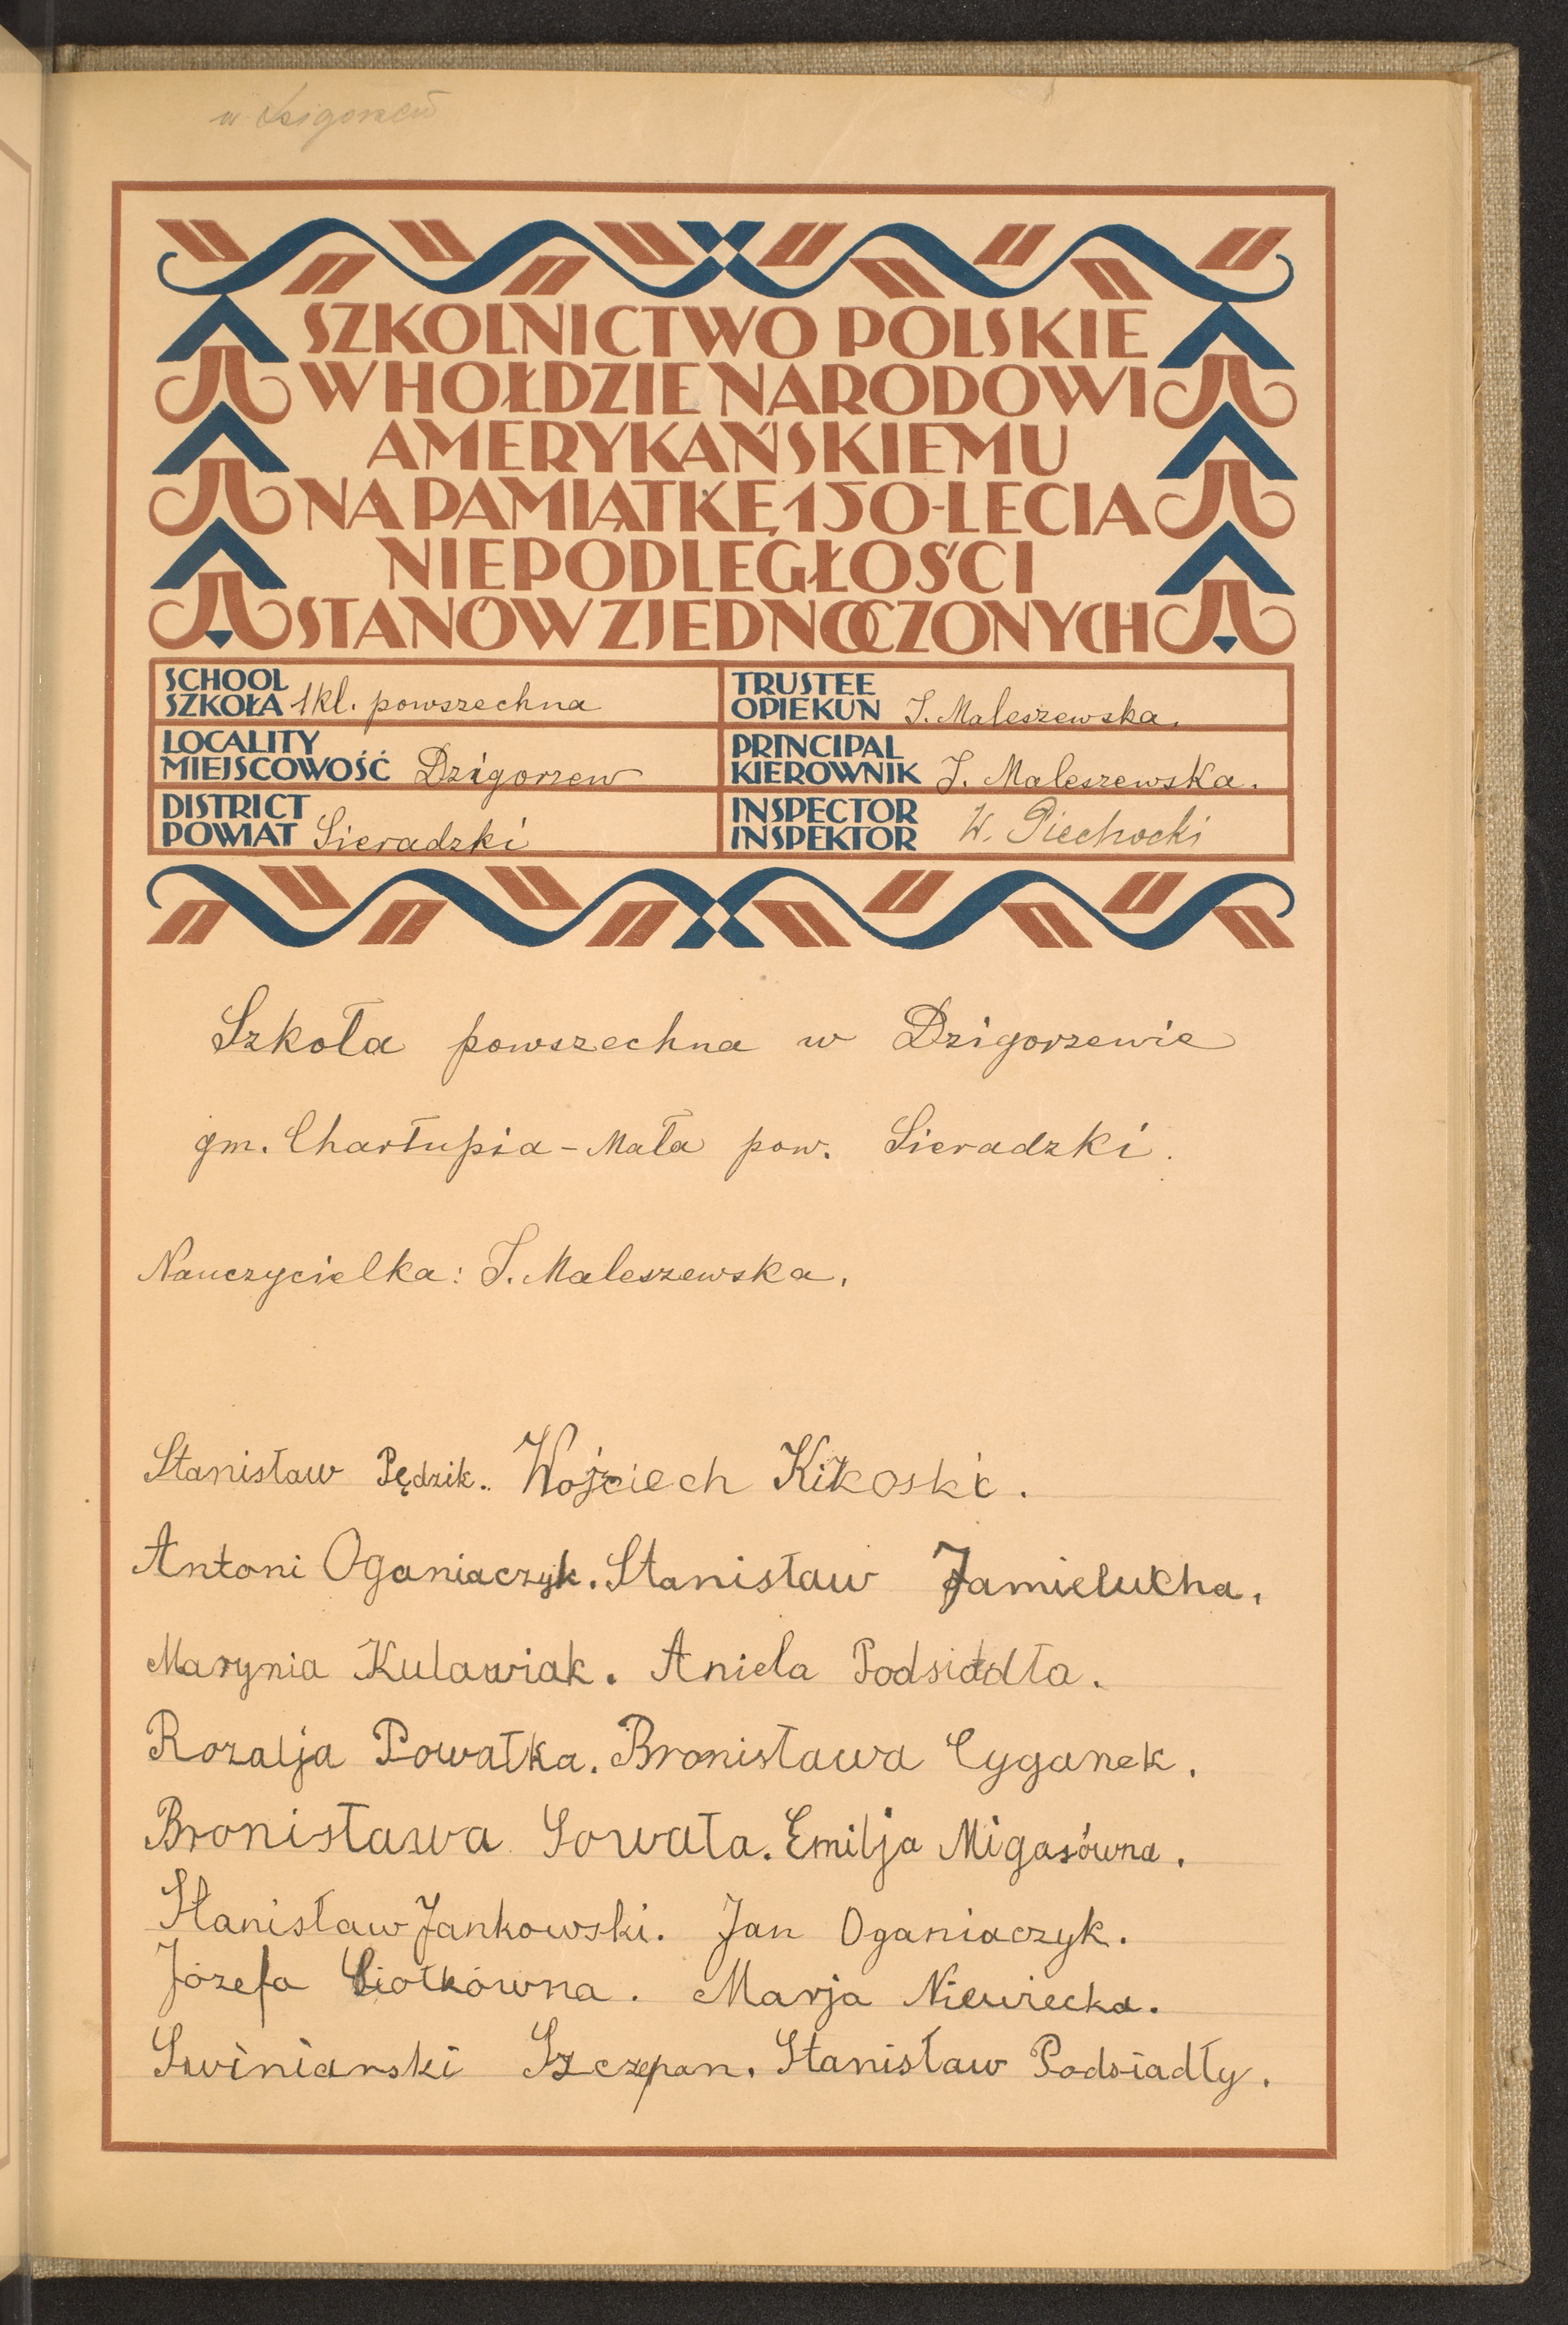 w Dzigorzew
SZKOLNICTWO POLSKIE
W HOŁDZIE NARODOWI
AMERYKAŃSKIEMU
NA PAMIĄTKĘ 150-LECIA
NIEPODLEGŁOŚCI
STANÓW ZJEDNOCZONYCH
SCHOOL
SZKOŁA 1 kl. powszechna
TRUSTEE
OPIEKUN J. Maleszewska.
LOCALITY
MIEJSCOWOŚĆ Dzigorzew
PRINCIPAL
KIEROWNIK J. Maleszewska.
DISTRICT
POWIAT Sieradzki
INSPECTOR
INSPEKTOR W. Piechocki
Szkoła powszechna w Dzigorzewie
gm. Charłupia-Mała pow. Sieradzki.
Nauczycielka: J. Maleszewska.
Stanisław Pędzik. Wojciech Kikoski.
Antoni Oganiaczyk. Stanisław Jamielucha.
Marynia Kulawiak. Aniela Podsiadła.
Rozalja Powałka. Bronisława Cyganek.
Bronisława Sowała. Emilja Migasówna.
Stanisław Jankowski. Jan Oganiaczyk.
Józefa Ciołkówna. Marja Niewiecka.
Swiniarski Szczepan. Stanisław Podsiadły.